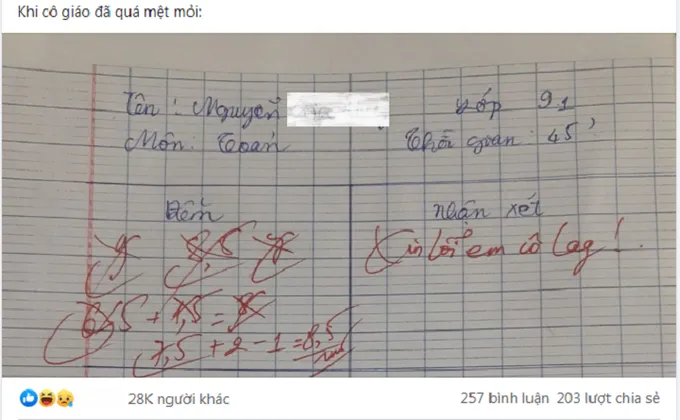 Khi cô giáo đã quá mệt mỏi:
Tên : Nguyễn
Lớp 9.1
Môn : Toán
Thời gian : 45'
Điểm
Nhận xét
8,5
Xin lỗi em cô lag !
+ 7,5 =
7,5 + 2 - 1 = 8,5
28K người khác
257 bình luận 203 lượt chia sẻ